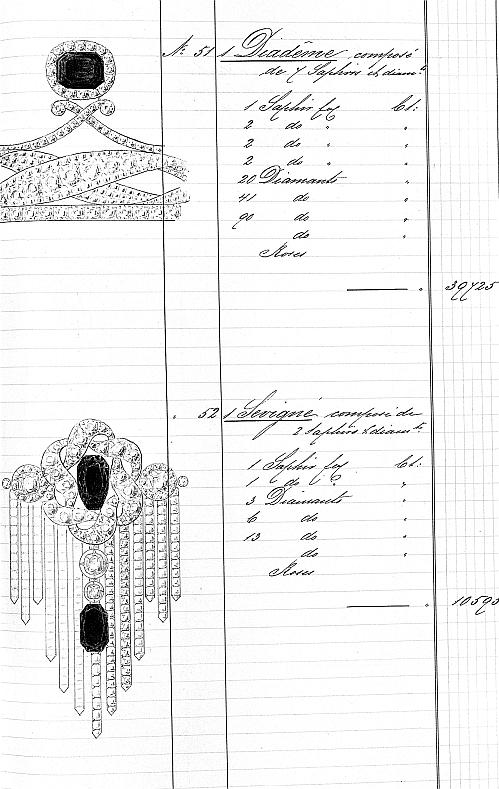 No: 51 1 Diadême composé
de 7 Saphirs et diamts
1 Saphir fcy Ct:
2 do " "
2 do " "
2 do "
20 Diamants "
41 do "
90 do "
do "
Roses
39725
" 52 1 Sévigné composé de
2 Saphirs & diamts
1 Saphir fcy Ct:
1 do " "
3 Diamants "
6 do "
13 do "
do "
Roses
10590